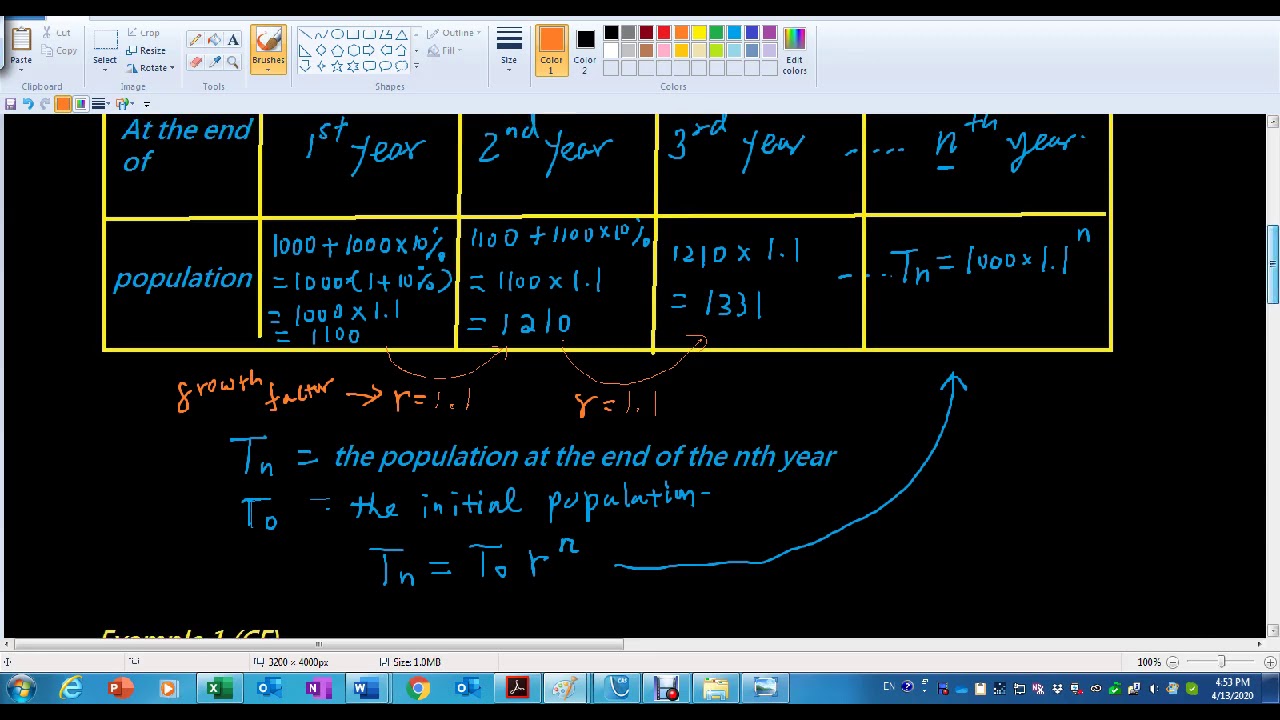 Cut
Copy
Paste
Clipboard
Crop
Resize
Rotate
Select
Image
A
Tools
Brushes
Outline
Fill
Shapes
Size
Color 1
Color 2
Edit colors
Colors
At the end of
1st year
2nd year
3rd year
..... nth year.
population
1000 + 1000 × 10%
= 1000 × (1 + 10%)
= 1000 × 1.1
= 1100
1100 + 1100 × 10%
= 1100 × 1.1
= 1210
1210 × 1.1
= 1331
..... Tn = 1000 × 1.1^n
growth factor → r = 1.1
r = 1.1
Tn = the population at the end of the nth year
T0 = the initial population
Tn = T0 r^n
Example 1 (CE)
3200 × 4000px
Size: 1.0MB
100%
EN
4:53 PM
4/13/2020